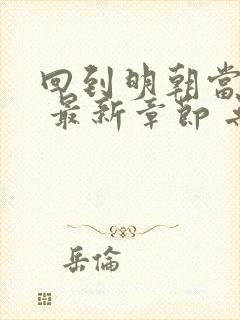 回到明朝當
最新章節
岳倫